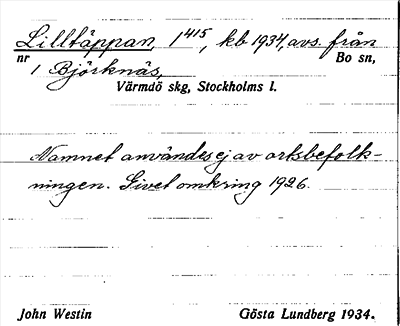 Lilltäppan, 1⁴¹⁵, kb 1934, avs. från
nr 1 Björknäs, Bo sn,
Värmdö skg, Stockholms l.
Namnet användes ej av ortsbefolk-
ningen. Givet omkring 1926.
John Westin Gösta Lundberg 1934.